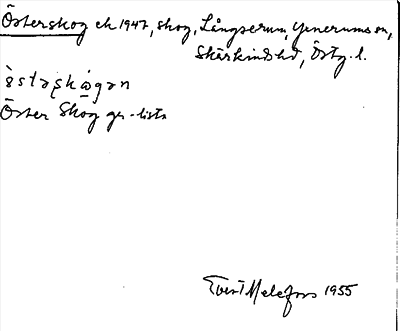 Österskog ek 1947, skog, Långserum, Yxnerums sn,
Skärkinds hd, Östg. l.
òstərskógən
Öster Skog gs-lista
Evert Melefors 1955